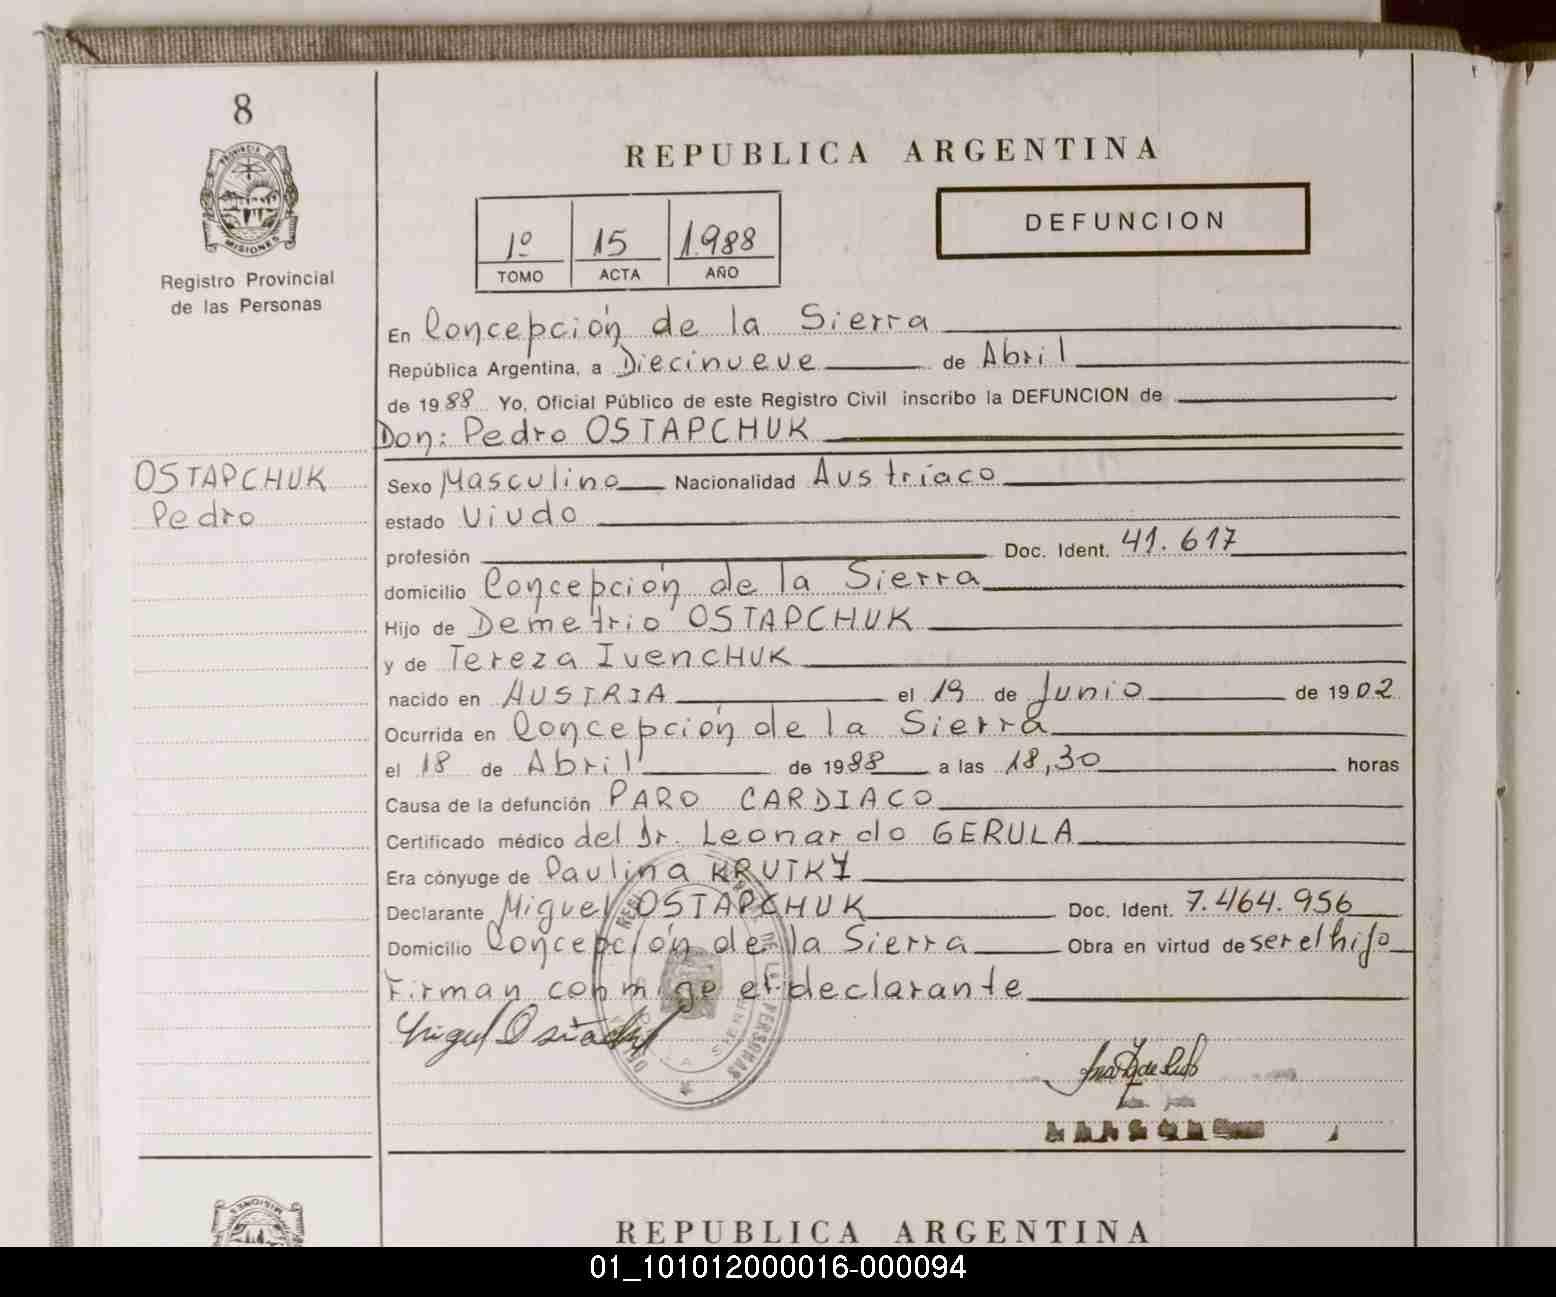 8
PROVINCIA DE
MISIONES
Registro Provincial
de las Personas
REPUBLICA ARGENTINA
1º 15 1.988
TOMO ACTA AÑO
DEFUNCION
En Concepción de la Sierra
República Argentina, a Diecinueve de Abril
de 1988 Yo, Oficial Público de este Registro Civil inscribo la DEFUNCION de
Don: Pedro OSTAPCHUK
OSTAPCHUK
Pedro
Sexo Masculino Nacionalidad Austríaco
estado Viudo
profesión Doc. Ident. 41.617
domicilio Concepción de la Sierra
Hijo de Demetrio OSTAPCHUK
y de Tereza IvenCHUK
nacido en AUSTRIA el 19 de Junio de 1902
Ocurrida en Concepción de la Sierra
el 18 de Abril de 1988 a las 18,30 horas
Causa de la defunción PARO CARDIACO
Certificado médico del Dr. Leonardo GERULA
Era cónyuge de Paulina KRUTKY
Declarante Miguel OSTAPCHUK Doc. Ident. 7.464.956
Domicilio Concepción de la Sierra Obra en virtud de ser el hijo
Firman conmigo el declarante
Miguel
DE LAS PERSONAS
LA SIERRA
MISIONES
REPUBLICA ARGENTINA
01_101012000016-000094